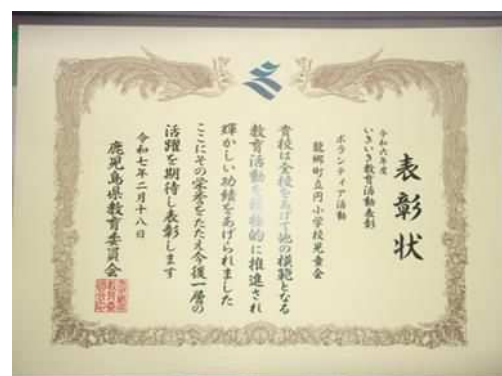 表彰状
令和六年度
いきいき教育活動表彰
ボランティア活動
龍郷町立円小学校児童会
貴校は全校をあげて他の模範となる
教育活動を積極的に推進され
輝かしい功績をあげられました
ここにその栄誉をたたえ今後一層の
活躍を期待し表彰します
令和七年二月十八日
鹿児島県教育委員会